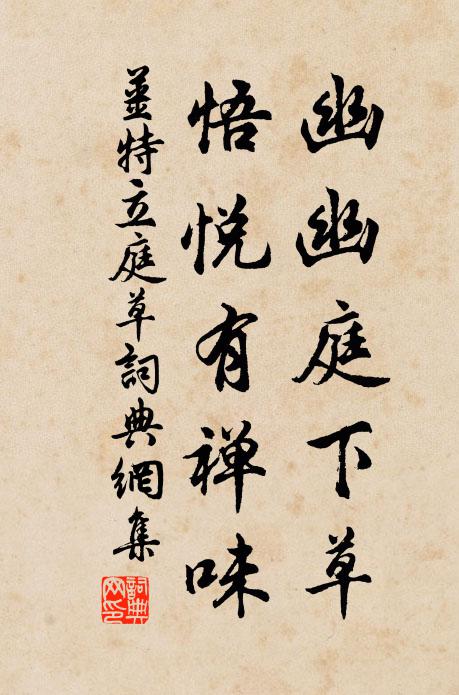 幽幽庭下草
悟悦有禅味
姜特立庭草詞典網集
詞典网印